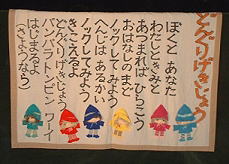 どんぐりげきじょう
ぼくと あなた
わたしときみと
あつまれば ひらこう
おはなしのまど
ノックしてみよう
へんじは あるかい
ノックしてみよう
きこえるよ
どんぐりげきじょう
はじまるよ
バンバラトンビン ワーイ
(さようなら)